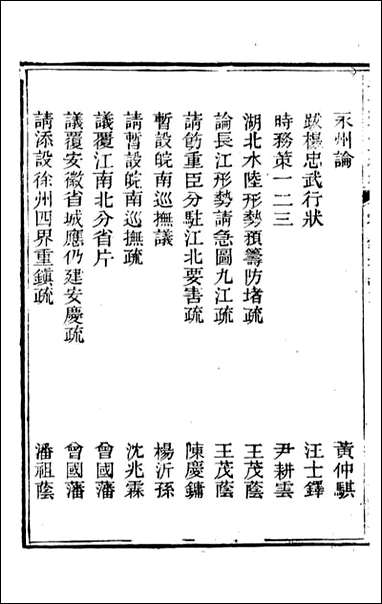 永州論 黃仲騏
跋楊忠武行狀 汪士鐸
時務策一二三 尹耕雲
湖北水陸形勢預籌防堵疏 王茂蔭
論長江形勢請急圖九江疏 王茂蔭
請飭重臣分駐江北要害疏 陳慶鏞
暫設皖南巡撫議 楊沂孫
請暫設皖南巡撫疏 沈兆霖
議覆江南北分省片 曾國藩
議覆安徽省城應仍建安慶疏 曾國藩
請添設徐州四界重鎮疏 潘祖蔭